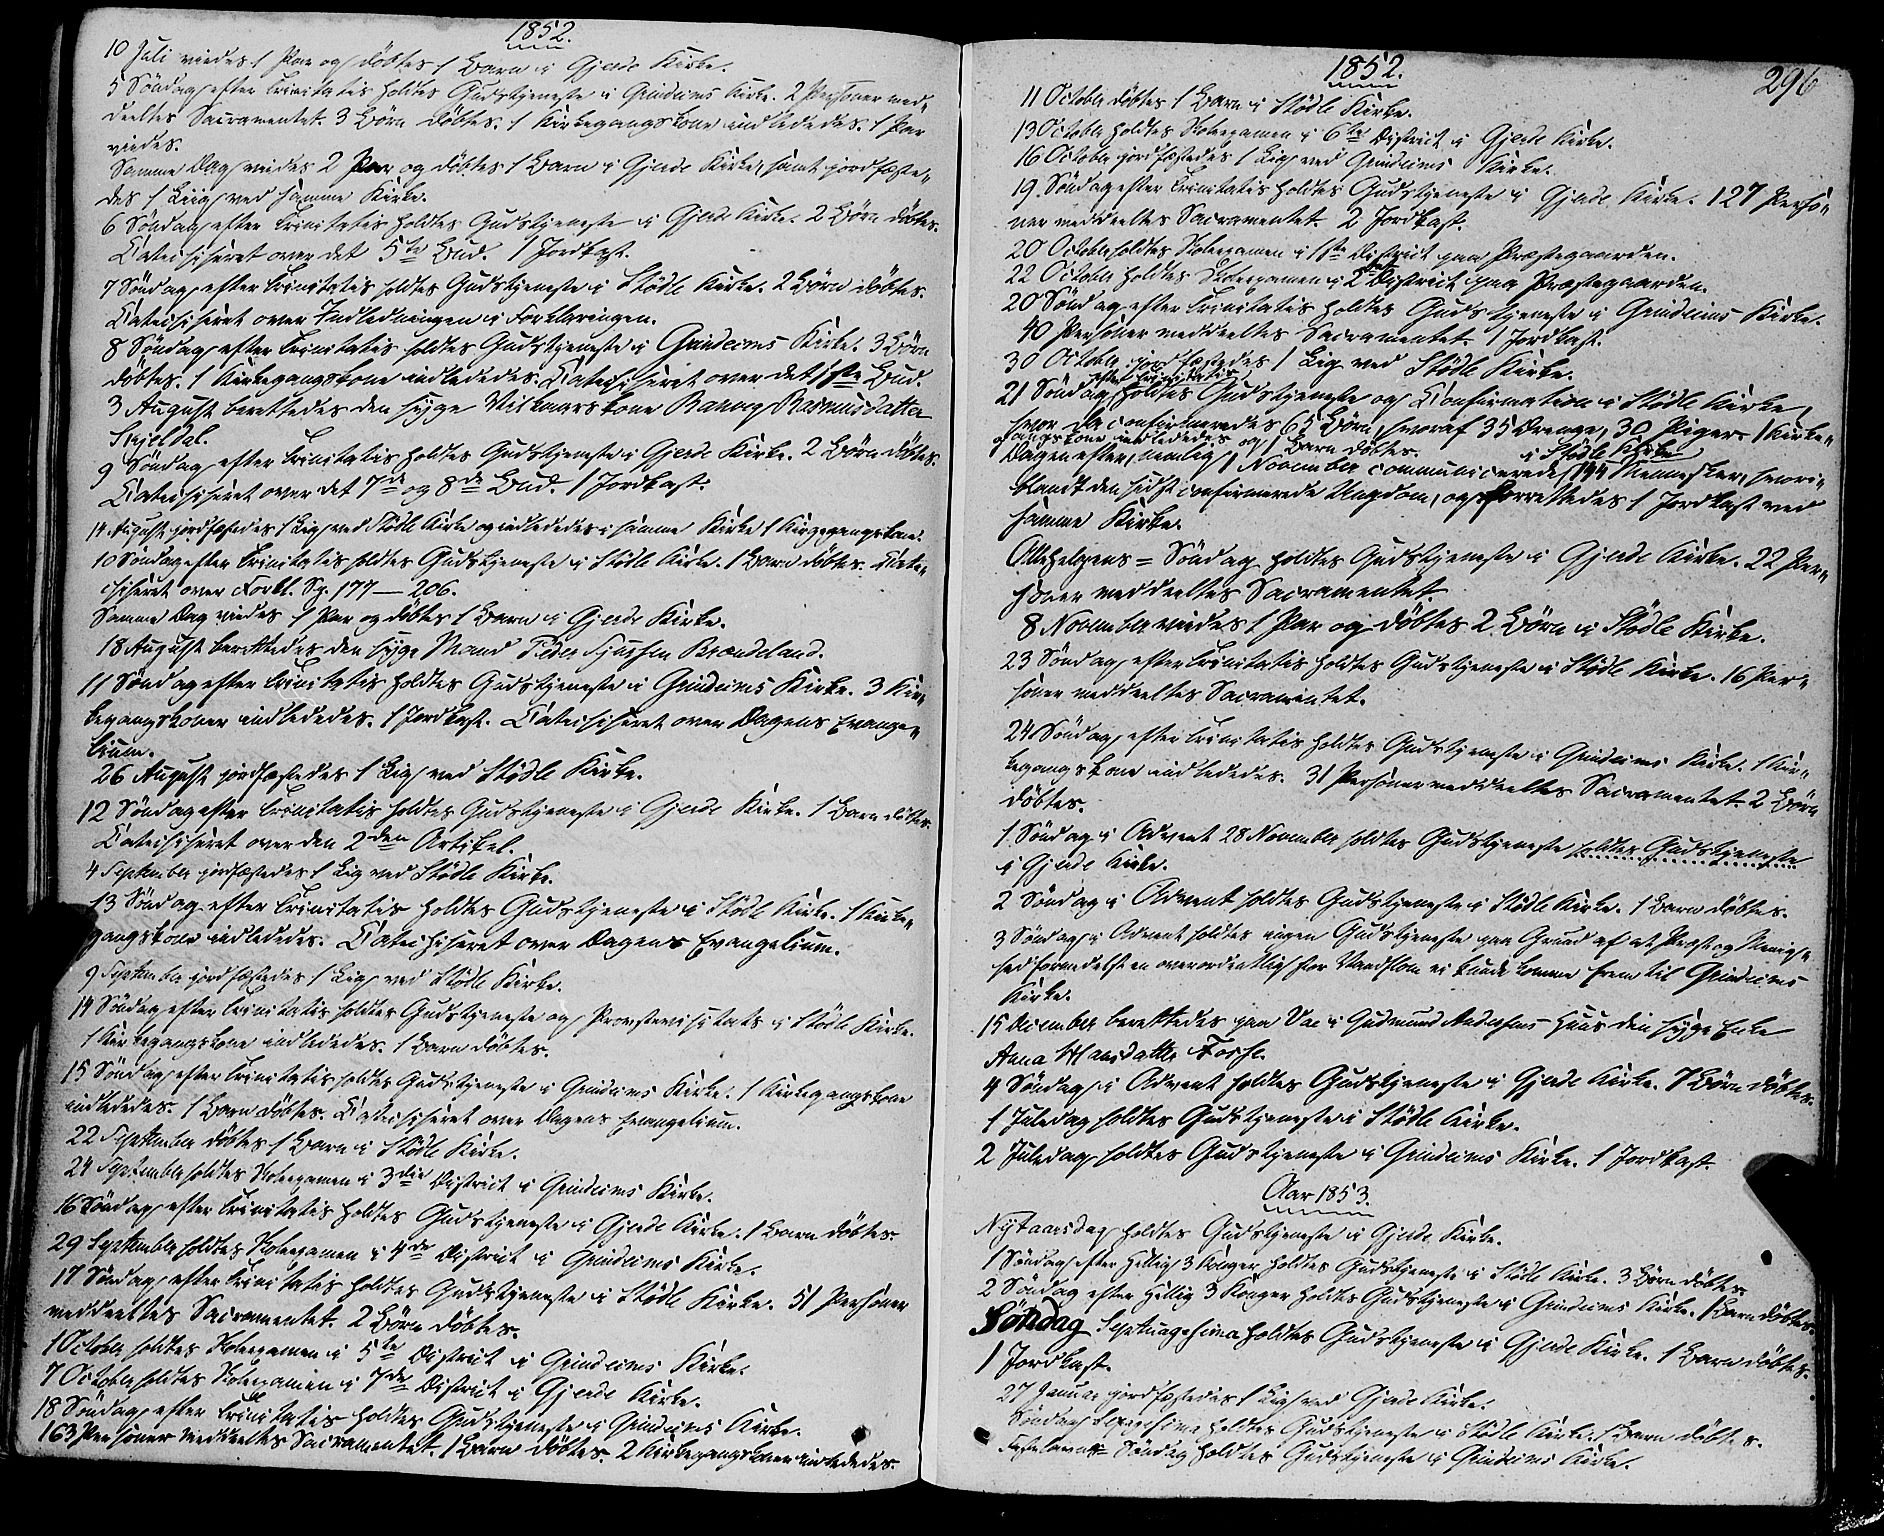 1852.
10 Juli viedes 1 Par og døbtes 1 Barn i Gjerde Kirke.
5 Søndag efter Trinitatis holdtes Gudstjeneste i Grindeims Kirke. 2 Personer med-
deeltes Sacramentet. 3 Børn døbtes. 1 Kirkegangskone indlededes. 1 Par
viedes.
Samme Dag viedes 2 Par og døbtes 1 Barn i Gjerde Kirke, samt jordfæste-
des 1 Liig ved samme Kirke.
6 Søndag efter Trinitatis holdtes Gudstjeneste i Gjerde Kirke. 2 Børn døbtes.
Catechiseret over det 5te Bud. 1 Jordkast.
7 Søndag efter Trinitatis holdtes Gudstjeneste i Stødle Kirke. 2 Børn døbtes.
Catechiseret over Indledningen i Forklaringen.
8 Søndag efter Trinitatis holdtes Gudstjeneste i Grindeims Kirke. 3 Børn
døbtes. 1 Kirkegangskone indlededes. Catechiseret over det 1ste Bud.
3 August berettedes den syge Vilkaarskone Rasmusdatter
Skjeldal.
9 Søndag efter Trinitatis holdtes Gudstjeneste i Gjerde Kirke. 2 Børn døbtes.
Catechiseret over det 7de og 8de Bud. 1 Jordkast.
14 August jordfæstedes 1 Lig ved Stødle Kirke og indlededes i samme Kirke 1 Kirkegangskone.
10 Søndag efter Trinitatis holdtes Gudstjeneste i Stødle Kirke. 1 Barn døbtes. Cate-
chiseret over Forkl. Sp. 177 — 206.
Samme Dag viedes 1 Par og døbtes 1 Barn i Gjerde Kirke.
18 August berettedes den syge Mand Peder
11 Søndag efter Trinitatis holdtes Gudstjeneste i Grindeims Kirke. 3 Kir-
kegangskoner indlededes. 1 Jordkast. Catechiseret over Dagens Evange-
lium.
26 August jordfæstedes 1 Lig ved Stødle Kirke.
12 Søndag efter Trinitatis holdtes Gudstjeneste i Gjerde Kirke. 1 Barn døbtes.
Catechiseret over den 2den Artikel.
4 September jordfæstedes 1 Lig ved Stødle Kirke.
13 Søndag efter Trinitatis holdtes Gudstjeneste i Stødle Kirke. 1 Kirke-
gangskone indlededes. Catechiseret over Dagens Evangelium.
9 September jordfæstedes 1 Lig ved Stødle Kirke.
14 Søndag efter Trinitatis holdtes Gudstjeneste og Provstevisitats i Stødle Kirke.
1 Kirkegangskone indlededes. 1 Barn døbtes.
15 Søndag efter Trinitatis holdtes Gudstjeneste i Grindeims Kirke. 1 Kirkegangskone
indlededes. 1 Barn døbtes. Catechiseret over Dagens Evangelium.
22 September døbtes 1 Barn i Stødle Kirke.
24 September holdtes Skoleexamen i 3die District i Grindeims Kirke.
16 Søndag efter Trinitatis holdtes Gudstjeneste i Gjerde Kirke. 1 Barn døbtes
29 September holdtes Skoleexamen i 4de District i Grindeims Kirke.
17 Søndag efter Trinitatis holdtes Gudstjeneste i Stødle Kirke. 51 Personer
meddeeltes Sacramentet. 2 Børn døbtes.
1 October holdtes Skoleexamen i 5te District i Grindeims Kirke.
7 October holdtes Skoleexamen i 7de District i Gjerde Kirke.
18 Søndag efter Trinitatis holdtes Gudstjeneste i Grindeims Kirke.
163 Personer meddeeltes Sacramentet. 1 Barn døbtes. 2 Kirkegangskoner indlededes.
1852.
296
11 October døbtes 1 Barn i Stødle Kirke.
13 October holdtes Skoleexamen i 6te District i Gjerde Kirke.
16 October jordfæstedes 1 Lig ved Grindeims Kirke.
19. Søndag efter Trinitatis holdtes Gudstjeneste i Gjerde Kirke. 127 Perso-
ner meddeeltes Sacramentet. 2 Jordkast.
20 October holdtes Skoleexamen i 1ste District paa Præstegaarden.
22 October holdtes Skoleexamen i 2det District paa Præstegaarden.
20 Søndag efter Trinitatis holdtes Gudstjeneste i Grindeims Kirke.
40 Personer meddeeltes Sacramentet. 1 Jordkast.
30 October jordfæstedes 1 Lig ved Stødle Kirke.
21 Søndag efter Trinitatis holdtes Gudstjeneste og Confirmation i Stødle Kirke,
hvor da confirmeredes 65 Børn, hvoraf 35 Drenge, 30 Piger. 1 Kirke-
gangskone indlededes og 1 Barn døbtes.
Dagen efter, nemlig 1 November communicerede i Stødle Kirke 144 Mennesker, hvori-
blandt den sidst confirmerede Ungdom, og forrettedes 1 Jordkast ved
samme Kirke.
Allehelgens = Søndag holdtes Gudstjeneste i Gjerde Kirke. 22 Per-
soner meddeeltes Sacramentet.
8 November viedes 1 Par og døbtes 2 Børn i Stødle Kirke.
23 Søndag efter Trinitatis holdtes Gudstjeneste i Stødle Kirke. 16 Per-
soner meddeeltes Sacramentet.
24 Søndag efter Trinitatis holdtes Gudstjeneste i Grindeims Kirke. 1 Kir-
kegangskone indlededes. 31 Personer meddeeltes Sacramentet. 2 Børn
døbtes.
1 Søndag i Advent 28 November holdtes Gudstjeneste holdtes Gudstjeneste
i Gjerde Kirke.
2 Søndag i Advent holdtes Gudstjeneste i Stødle Kirke. 1 Barn døbtes.
3 Søndag i Advent holdtes ingen Gudstjeneste paa Grund af at Præst og Menig-
hed formedelst en overordentlig stor Vandflom ei kunde komme frem til Grindeims
Kirke.
15 December berettedes paa Vae i Gudmund Andersens Huus den syge Enke
Anna Fosse.
4 Søndag i Advent holdtes Gudstjeneste i Gjerde Kirke. 7 Børn døbtes.
1 Juledag holdtes Gudstjeneste i Stødle Kirke.
2 Juledag holdtes Gudstjeneste i Grindeims Kirke. 1 Jordkast.
Aar 1853.
Nytaarsdag holdtes Gudstjeneste i Gjerde Kirke.
1 Søndag efter Hellig 3 Konger holdtes Gudstjeneste i Stødle Kirke. 3 Børn døbtes.
2 Søndag efter Hellig 3 Konger holdtes Gudstjeneste i Grindeims Kirke. 1 Barn døbtes.
Søndag Septuagesima holdtes Gudstjeneste i Gjerde Kirke. 1 Barn døbtes.
1 Jordkast.
27 Januar jordfæstedes 1 Lig ved Gjerde Kirke.
Søndag Sexagesima holdtes Gudstjeneste i Stødle Kirke. 1 Barn døbtes.
Fastelavns Søndag holdtes Gudstjeneste i Grindeims Kirke.